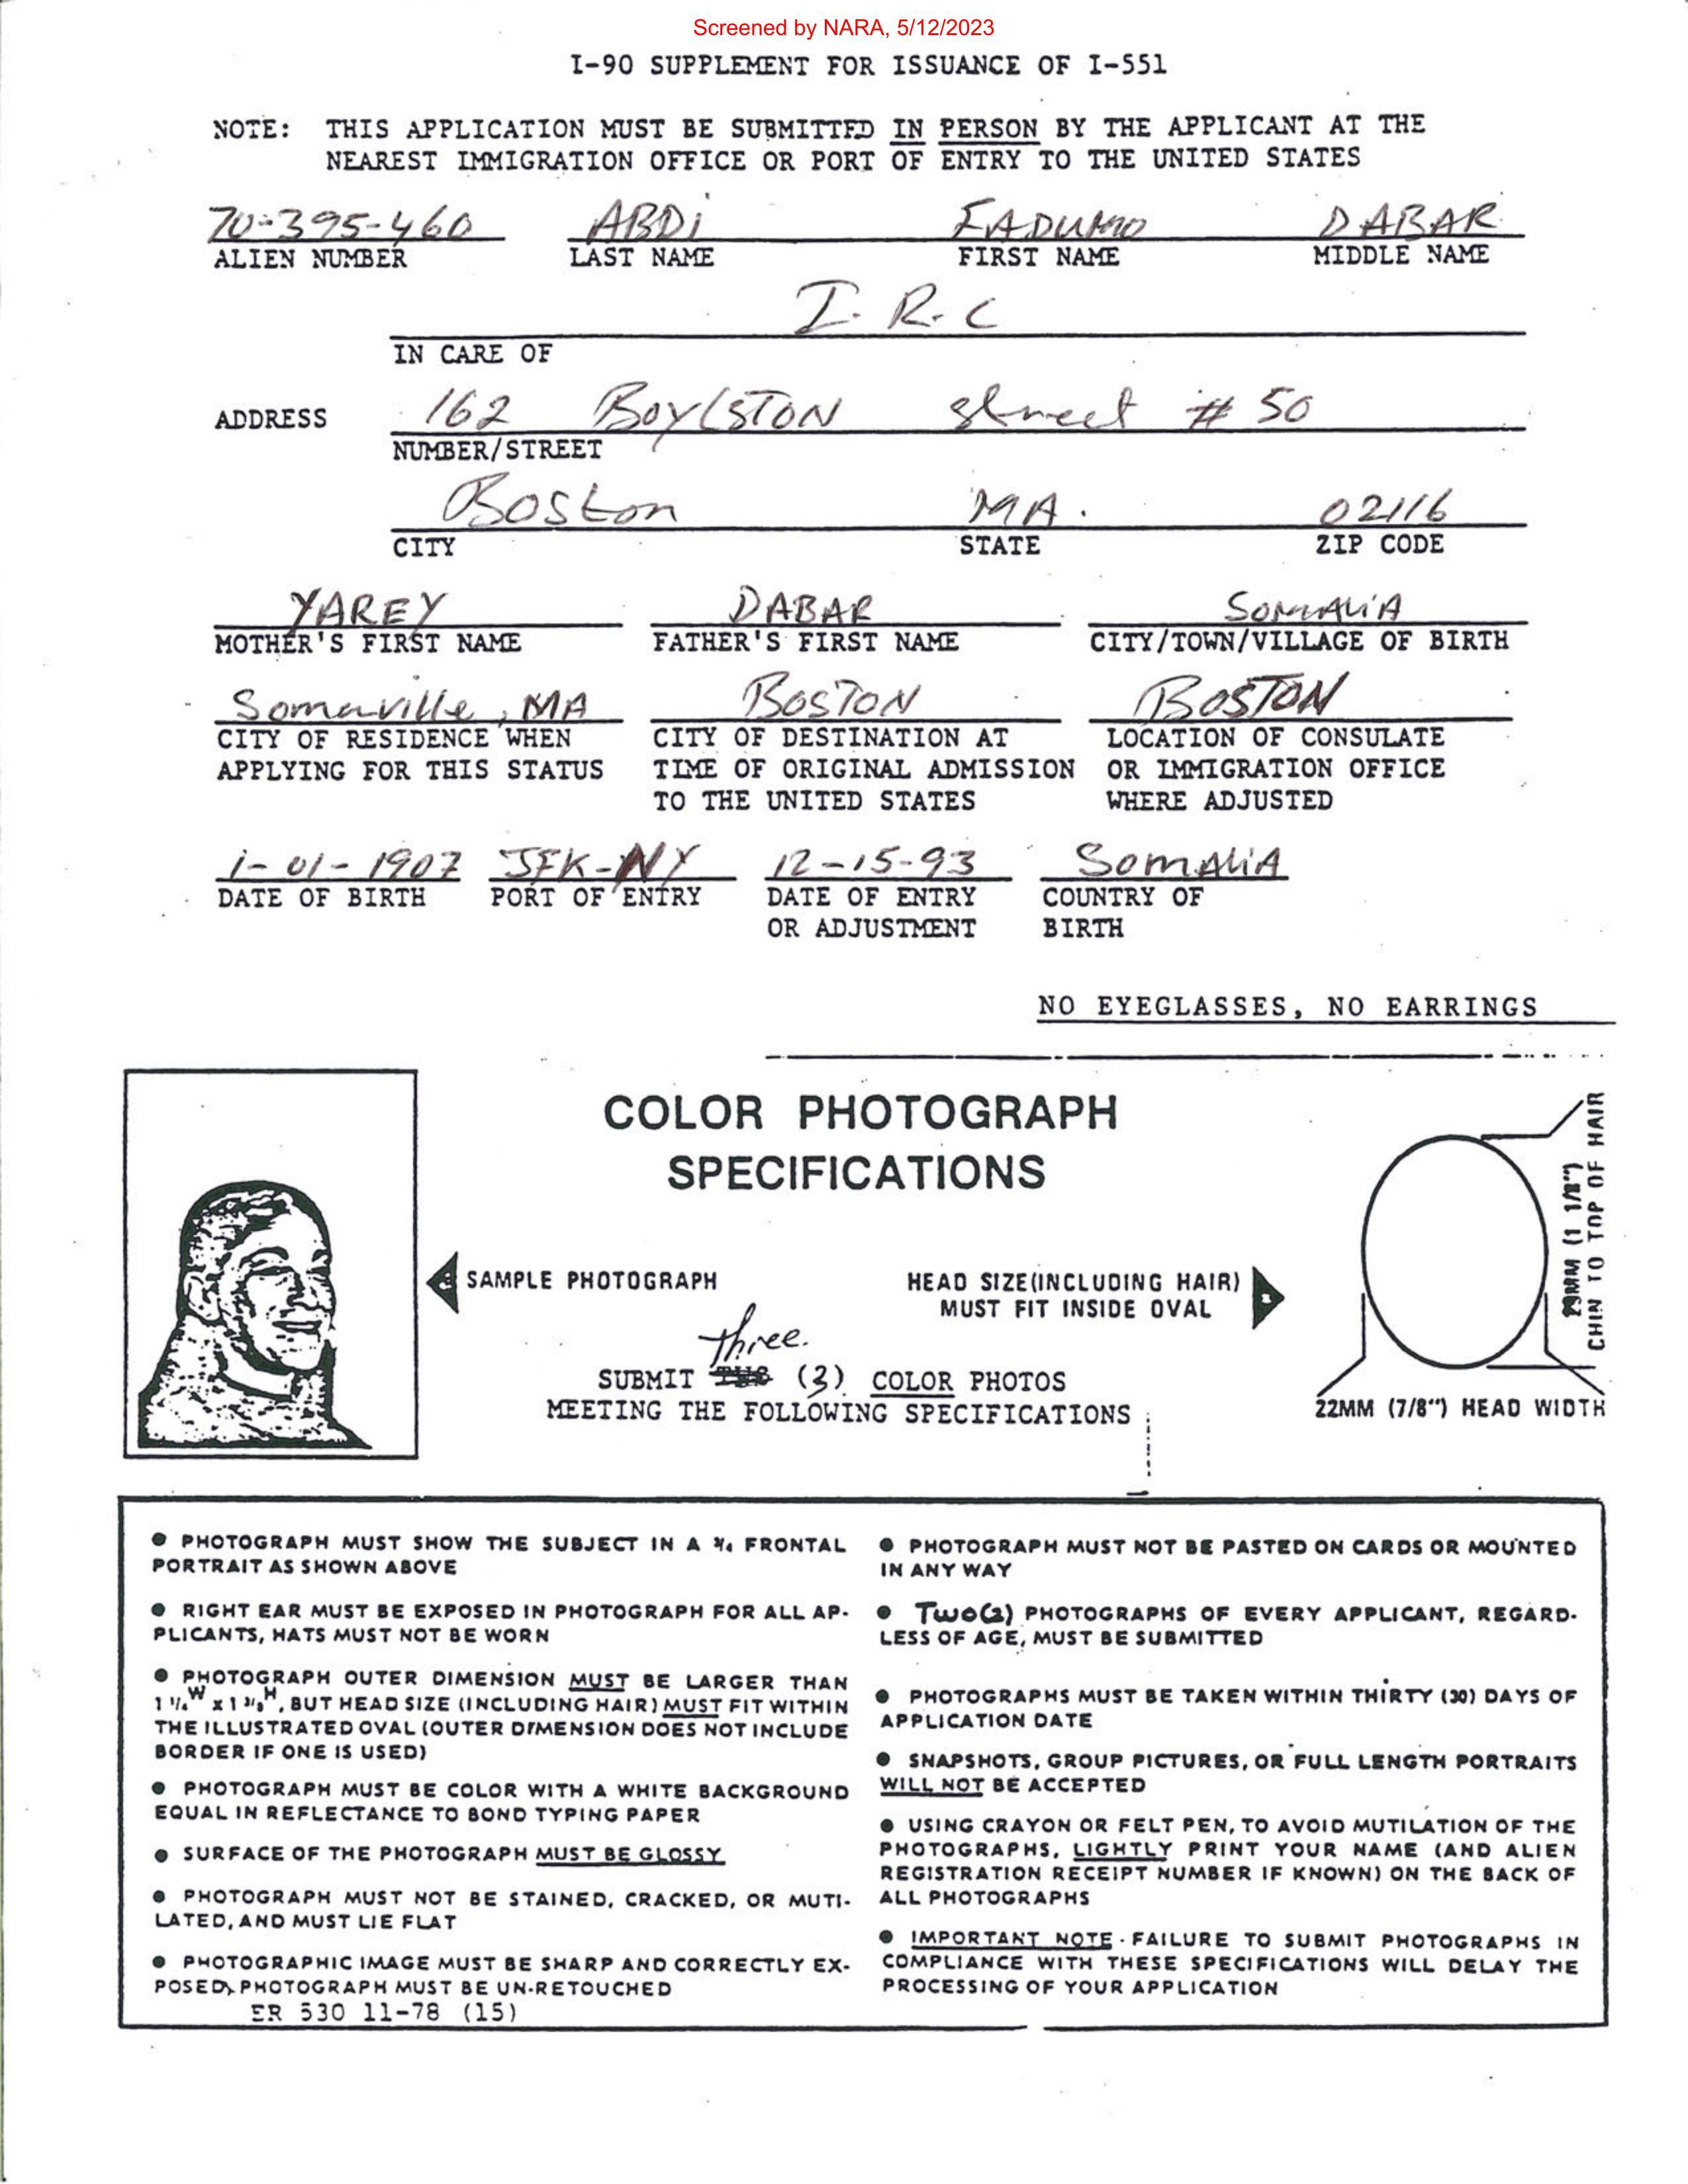 Screened by NARA, 5/12/2023
I-90 SUPPLEMENT FOR ISSUANCE OF I-551
NOTE: THIS APPLICATION MUST BE SUBMITTED IN PERSON BY THE APPLICANT AT THE
NEAREST IMMIGRATION OFFICE OR PORT OF ENTRY TO THE UNITED STATES
70-395-460 ABDI FADUMO DABAR
ALIEN NUMBER LAST NAME FIRST NAME MIDDLE NAME
I. R. C
IN CARE OF
ADDRESS 162 BOYLSTON street # 50
NUMBER/STREET
Boston MA. 02116
CITY STATE ZIP CODE
YAREY DABAR SOMALIA
MOTHER'S FIRST NAME FATHER'S FIRST NAME CITY/TOWN/VILLAGE OF BIRTH
Somerville, MA BOSTON BOSTON
CITY OF RESIDENCE WHEN CITY OF DESTINATION AT LOCATION OF CONSULATE
APPLYING FOR THIS STATUS TIME OF ORIGINAL ADMISSION OR IMMIGRATION OFFICE
TO THE UNITED STATES WHERE ADJUSTED
1-01-1907 JFK-NY 12-15-93 SOMALIA
DATE OF BIRTH PORT OF ENTRY DATE OF ENTRY COUNTRY OF
OR ADJUSTMENT BIRTH
NO EYEGLASSES, NO EARRINGS
COLOR PHOTOGRAPH
SPECIFICATIONS
SAMPLE PHOTOGRAPH
HEAD SIZE(INCLUDING HAIR)
MUST FIT INSIDE OVAL
29MM (1 1/8")
CHIN TO TOP OF HAIR
three.
SUBMIT (3) COLOR PHOTOS
MEETING THE FOLLOWING SPECIFICATIONS :
22MM (7/8") HEAD WIDTH
● PHOTOGRAPH MUST SHOW THE SUBJECT IN A ¾ FRONTAL
PORTRAIT AS SHOWN ABOVE
● RIGHT EAR MUST BE EXPOSED IN PHOTOGRAPH FOR ALL AP-
PLICANTS, HATS MUST NOT BE WORN
● PHOTOGRAPH OUTER DIMENSION MUST BE LARGER THAN
W x H, BUT HEAD SIZE (INCLUDING HAIR) MUST FIT WITHIN
THE ILLUSTRATED OVAL (OUTER DIMENSION DOES NOT INCLUDE
BORDER IF ONE IS USED)
● PHOTOGRAPH MUST BE COLOR WITH A WHITE BACKGROUND
EQUAL IN REFLECTANCE TO BOND TYPING PAPER
● SURFACE OF THE PHOTOGRAPH MUST BE GLOSSY
● PHOTOGRAPH MUST NOT BE STAINED, CRACKED, OR MUTI-
LATED, AND MUST LIE FLAT
● PHOTOGRAPHIC IMAGE MUST BE SHARP AND CORRECTLY EX-
POSED, PHOTOGRAPH MUST BE UN-RETOUCHED
ER 530 11-78 (15)
● PHOTOGRAPH MUST NOT BE PASTED ON CARDS OR MOUNTED
IN ANY WAY
● Two(2) PHOTOGRAPHS OF EVERY APPLICANT, REGARD-
LESS OF AGE, MUST BE SUBMITTED
● PHOTOGRAPHS MUST BE TAKEN WITHIN THIRTY (30) DAYS OF
APPLICATION DATE
● SNAPSHOTS, GROUP PICTURES, OR FULL LENGTH PORTRAITS
WILL NOT BE ACCEPTED
● USING CRAYON OR FELT PEN, TO AVOID MUTILATION OF THE
PHOTOGRAPHS, LIGHTLY PRINT YOUR NAME (AND ALIEN
REGISTRATION RECEIPT NUMBER IF KNOWN) ON THE BACK OF
ALL PHOTOGRAPHS
● IMPORTANT NOTE - FAILURE TO SUBMIT PHOTOGRAPHS IN
COMPLIANCE WITH THESE SPECIFICATIONS WILL DELAY THE
PROCESSING OF YOUR APPLICATION